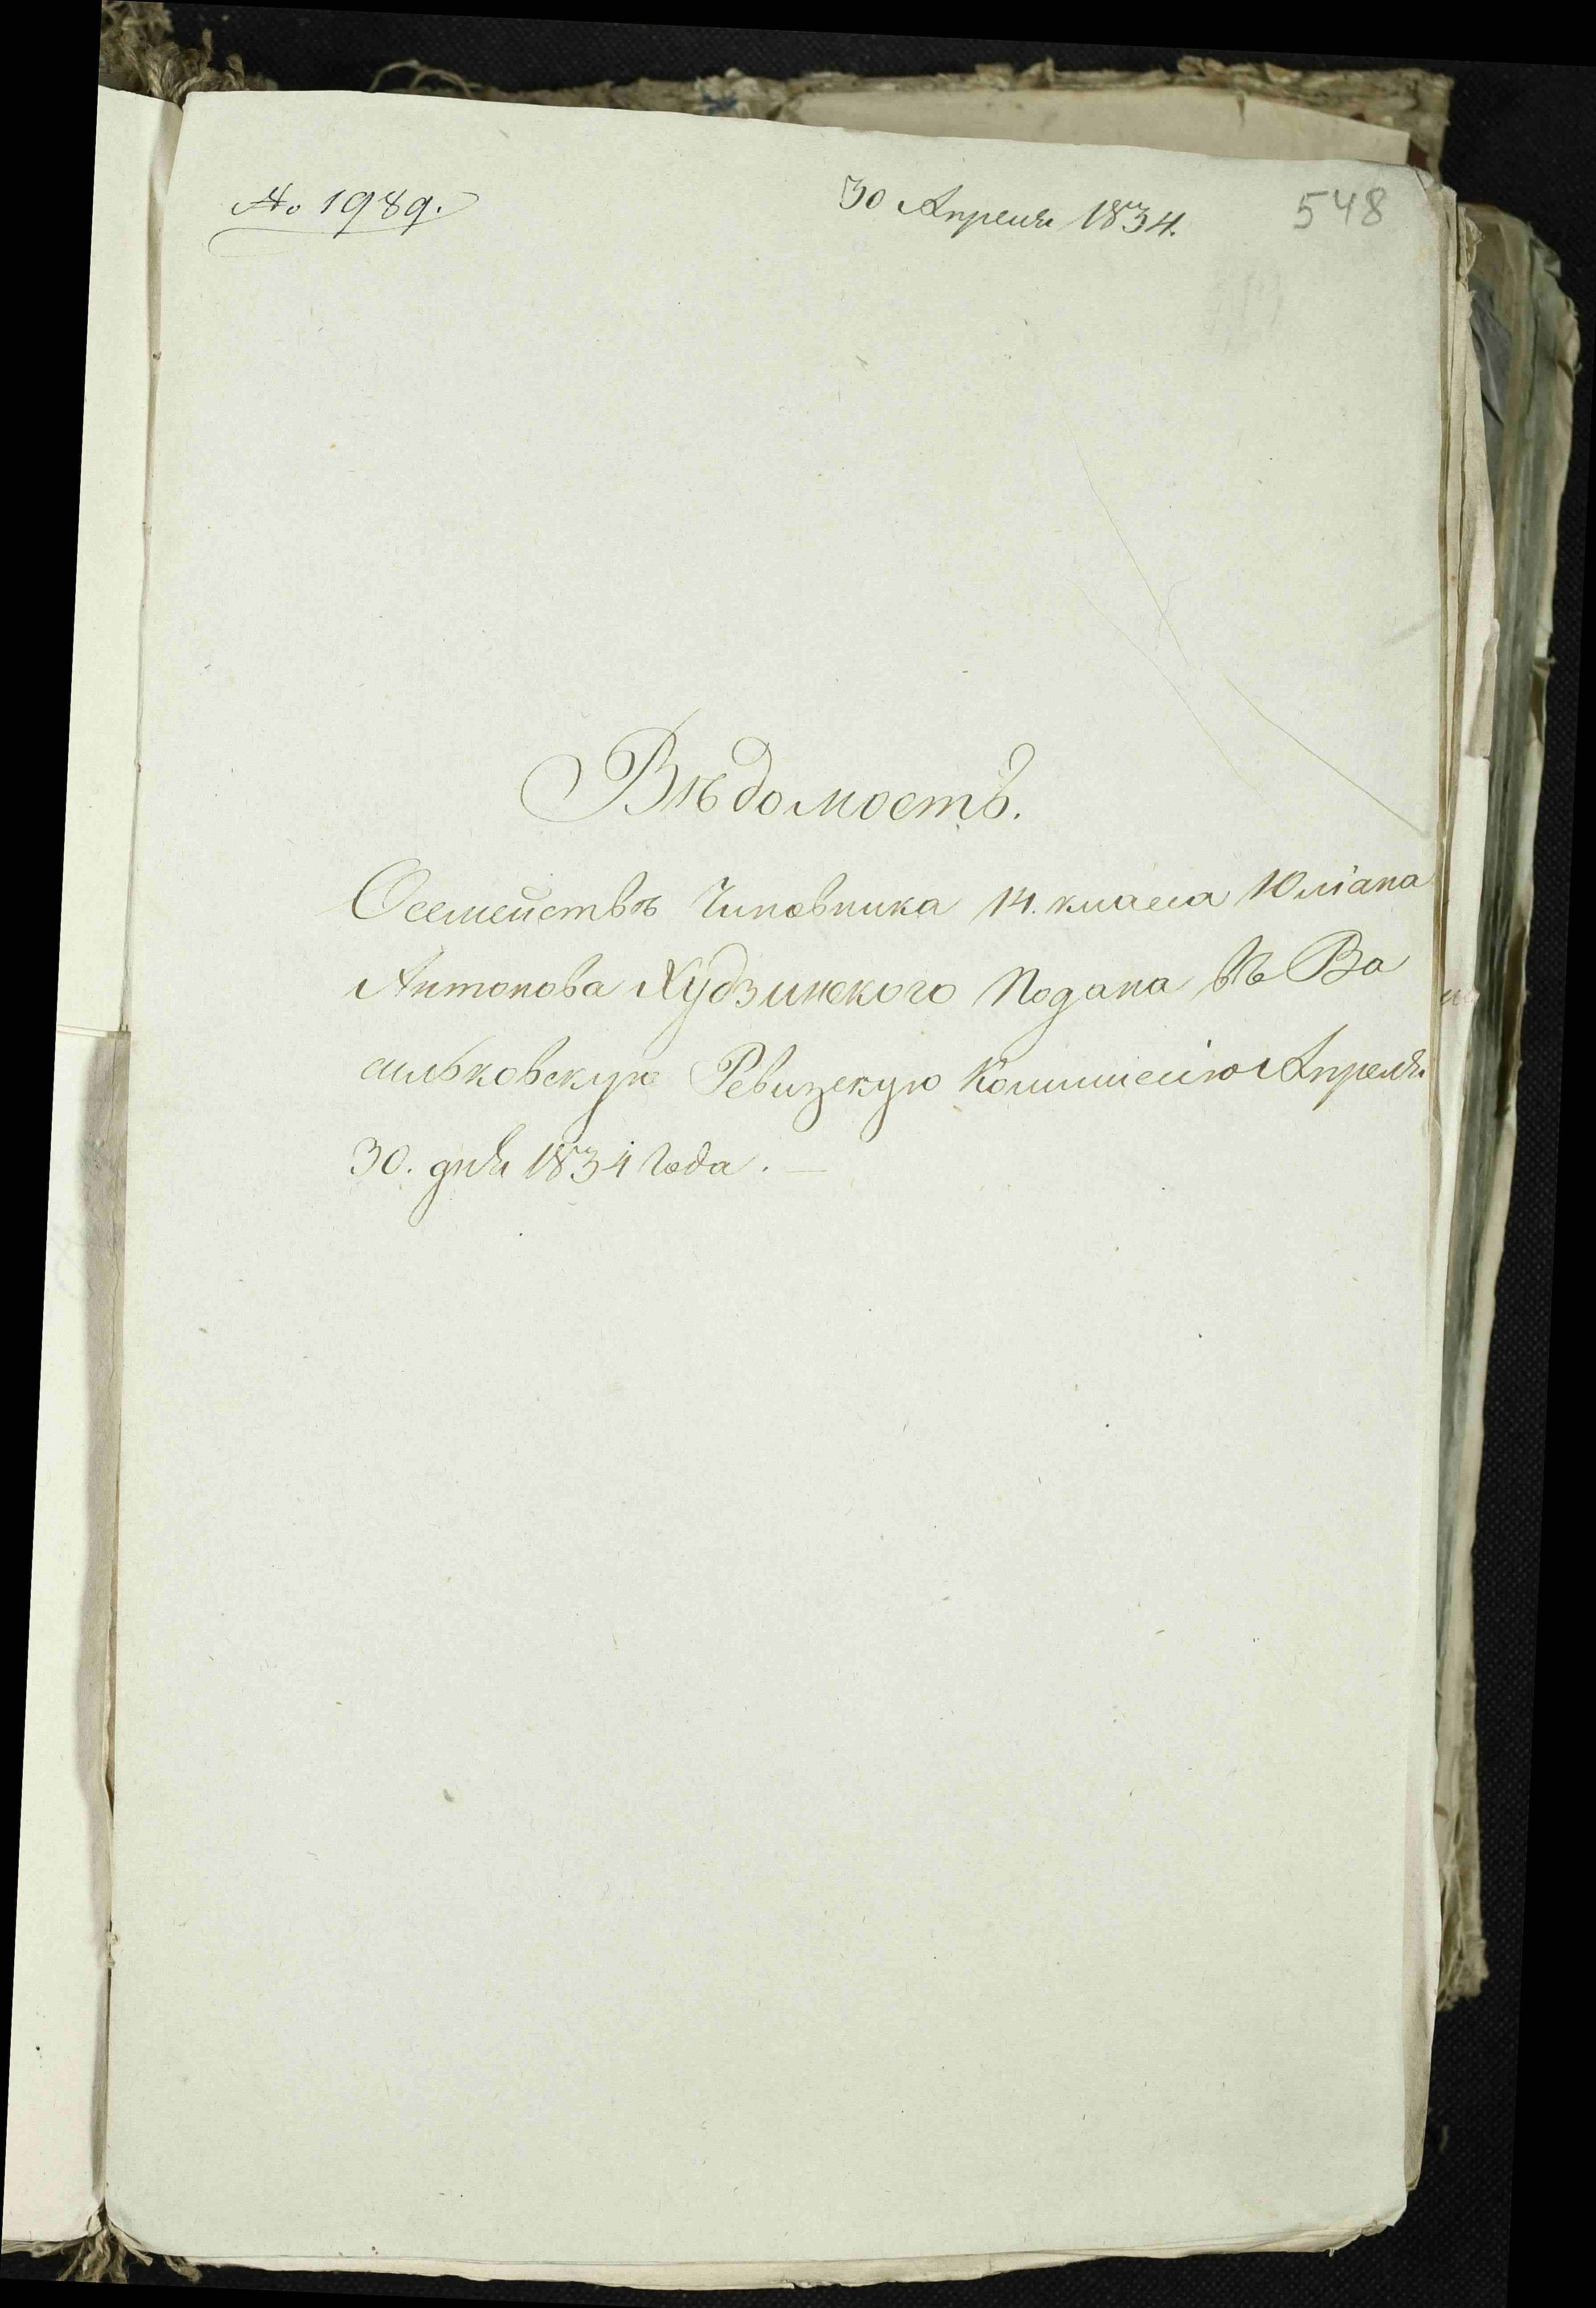 № 1989.
30 Апреля 1834.
548
Вѣдомость.
О семействѣ Чиновника 14. класса Юліана
Антонова Худзинского Подана въ Ва
сильковскую Ревизскую Коммисію Апреля
30. дня 1834 года. —